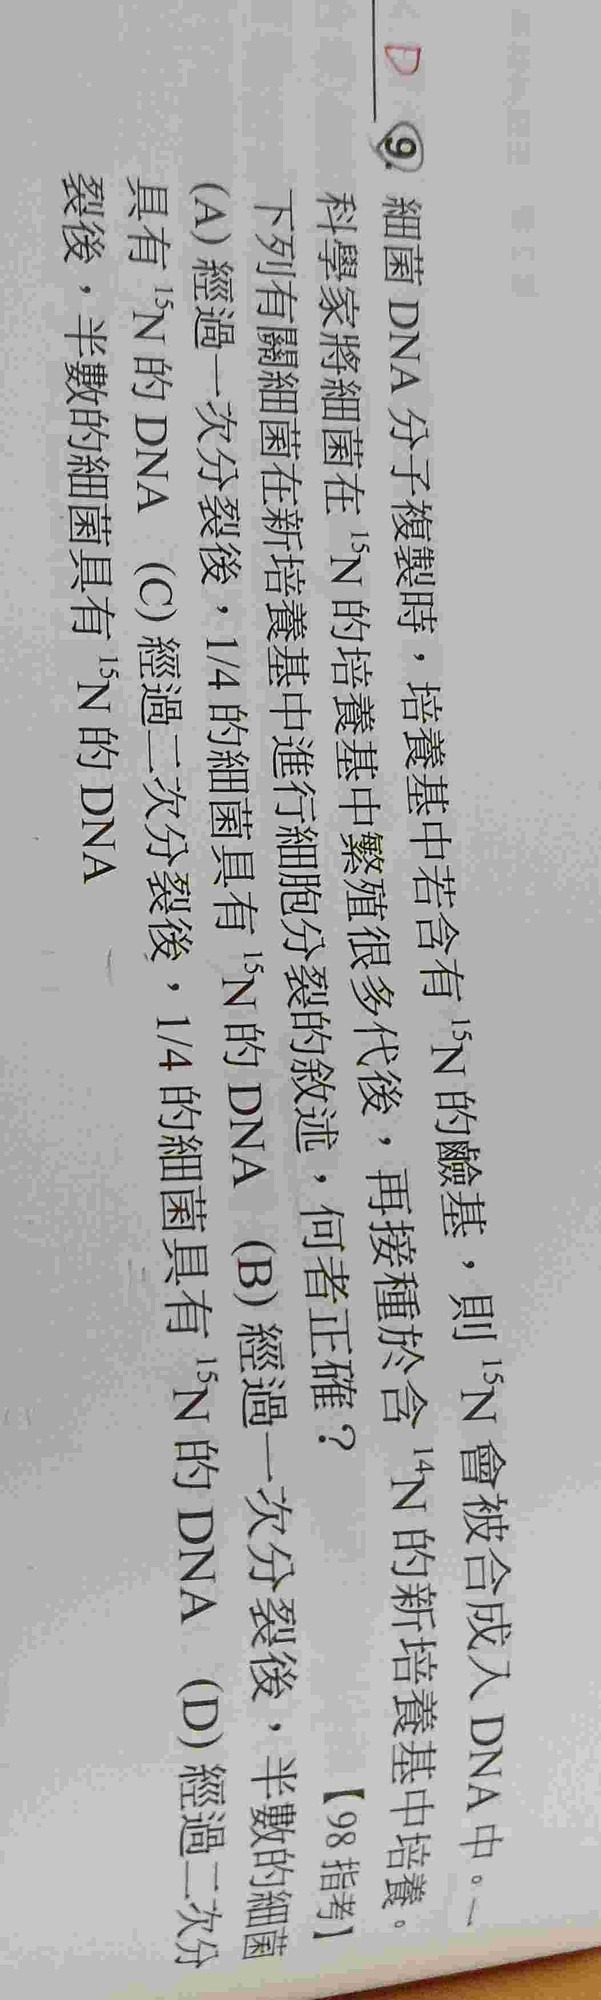 D 9. 細菌 DNA 分子複製時，培養基中若含有 ¹⁵N 的鹼基，則 ¹⁵N 會被合成入 DNA 中。一
科學家將細菌在 ¹⁵N 的培養基中繁殖很多代後，再接種於含 ¹⁴N 的新培養基中培養。
下列有關細菌在新培養基中進行細胞分裂的敘述，何者正確？ 【98 指考】
(A) 經過一次分裂後，1/4 的細菌具有 ¹⁵N 的 DNA (B) 經過一次分裂後，半數的細菌
具有 ¹⁵N 的 DNA (C) 經過二次分裂後，1/4 的細菌具有 ¹⁵N 的 DNA (D) 經過二次分
裂後，半數的細菌具有 ¹⁵N 的 DNA